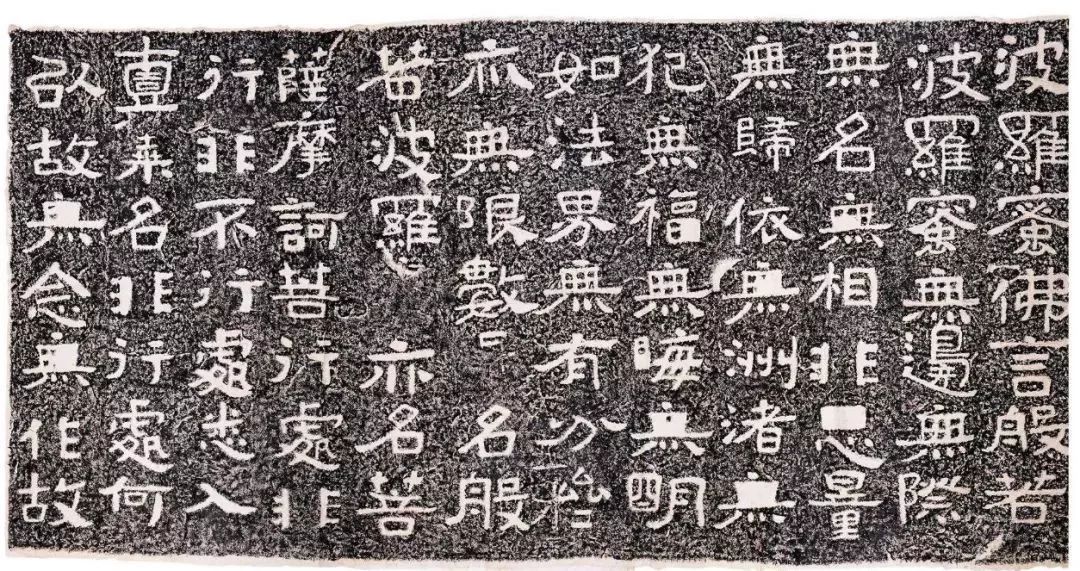 波羅蜜佛言般若
波羅蜜無邊無際
無名無相非思量
無歸依無洲渚無
犯無福無晦無明
如法界無有分齊
亦無限數名般
若波羅亦名菩
薩摩訶菩行處非
行非不行處悉入
壹乘名非行處何
以故無念無作故